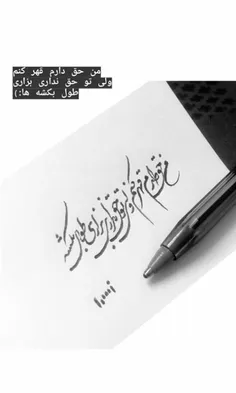 من حق دارم قهر کنم
ولی تو حق نداری بزاری
طول بکشه ها:)
من حق دارم قهر کنم ولی تو حق نداری بزاری طول بکشه